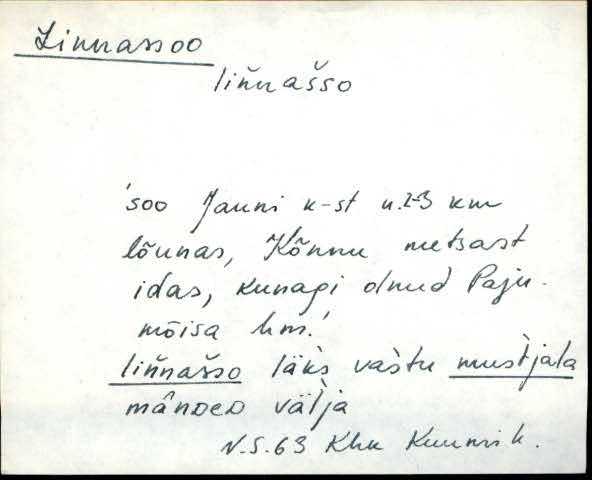 Linnassoo
liňnaššo
'soo Jauni k-st u. 2-3 km
lõunas, Kõnnu metsast
idas, kunagi olnud Paju-
mõisa hm.'
liňnaššo läks vaštu mustjala
välja
N.S.63 Khk Kuusik.